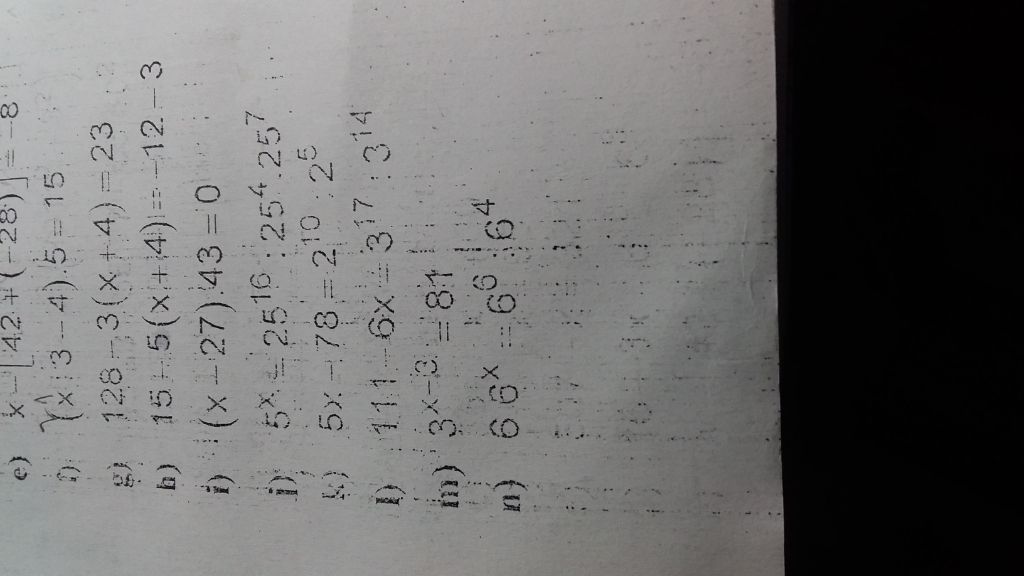 e) x – [42 + (–28)] = –8
f) (x:3 – 4).5 = 15
g) 128 – 3(x + 4) = 23
h) 15 – 5(x + 4) = –12 – 3
i) (x – 27).43 = 0
j) 5ˣ = 25¹⁶ : 25⁴.25⁷
k) 5x – 78 = 2¹⁰ : 2⁵
l) 111 – 6x = 3¹⁷ : 3¹⁴
m) 3ˣ⁻³ = 81
n) 6 6ˣ = 6⁶ : 6⁴